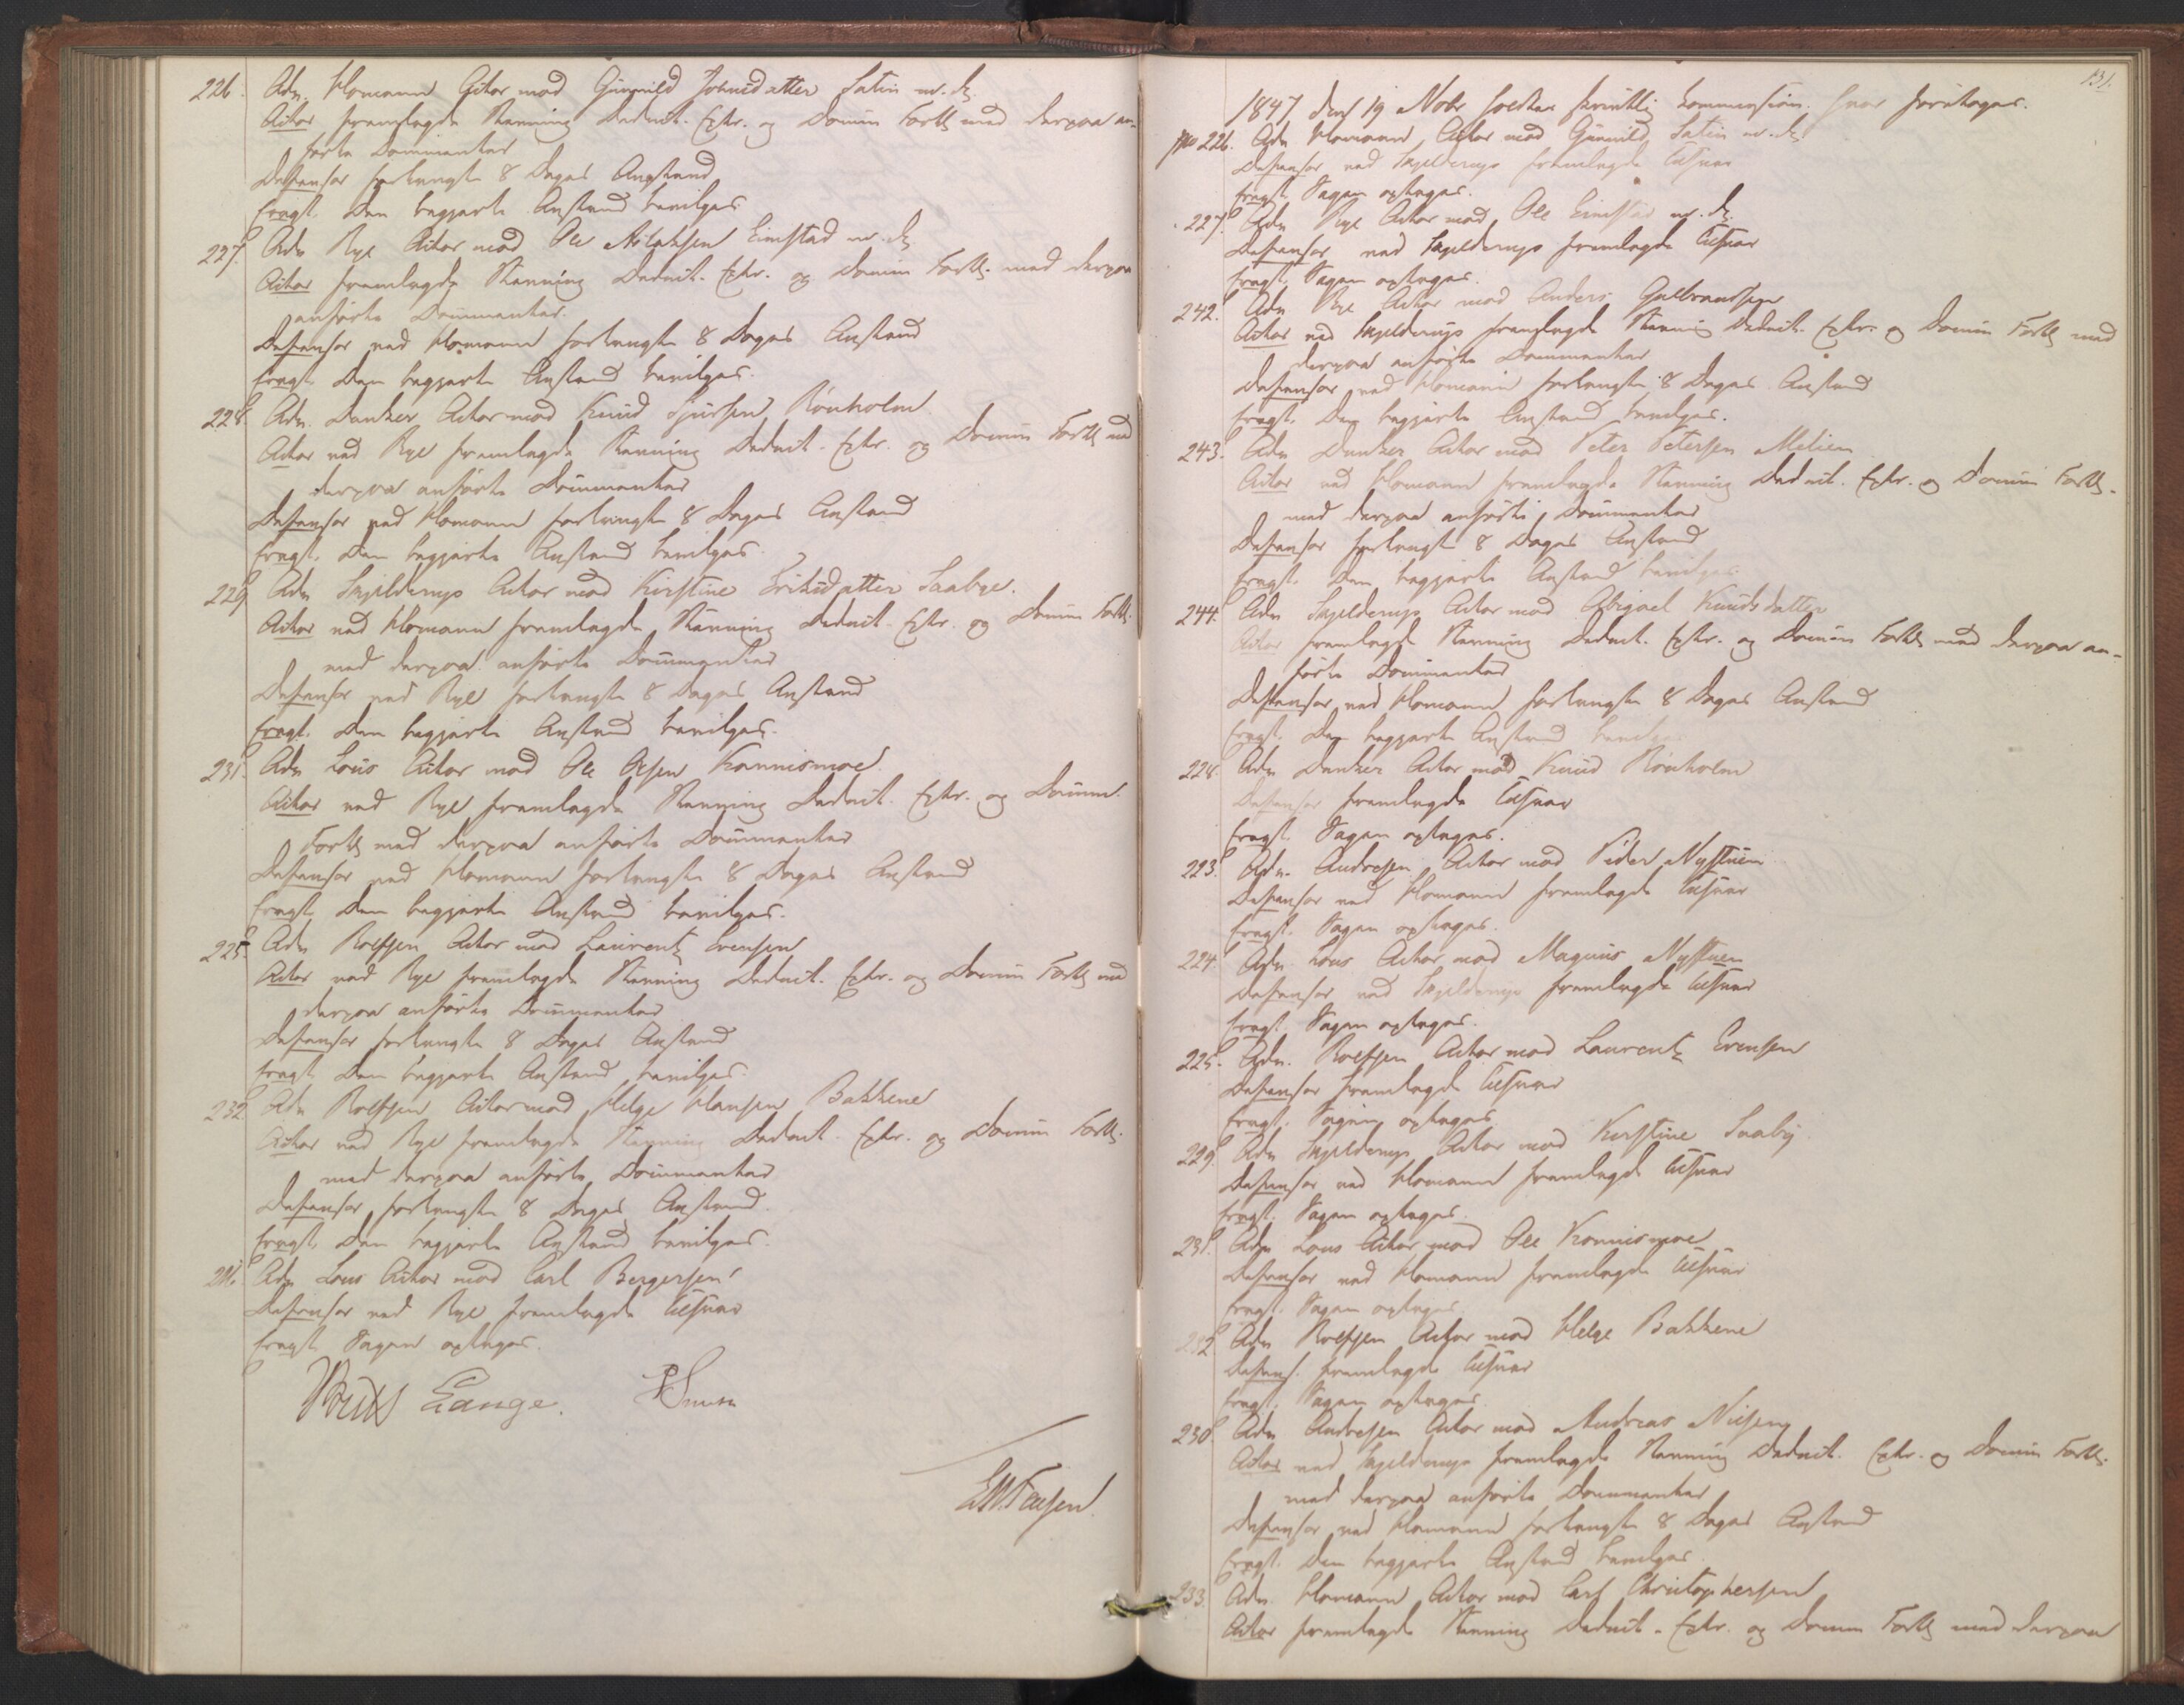 226. Adv. Homann Actor mod Gunnild Johnsdatter Satin m. fl.
Actor fremlagde Stevning Deduct. Extr. og Docum Fortk med derpaa an-
førte Documenter
Defensor forlangte 8 Dages Anstand
Eragt. Den begjærte Anstand bevilges
227. Adv Rye Actor mod Ole Aslaksen Eimstad m. fl.
Actor fremlagde Stevning Deduct. Extr. og Docum Fortk. med derpaa
anførte Documenter.
Defensor ved Homann forlangte 8 Dages Anstand
Eragt. Den begjærte Anstand bevilges.
228. Adv. Dunker Actor mod Knud Sjursen Rönholm
Actor ved Rye fremlagde Stevning Deduct. Extr. og Docum Fortk med
derpaa anførte Documenter
Defensor ved Homann forlangte 8 Dages Anstand
Eragt. Den begjærte Anstand bevilges.
229 Adv Skjelderup Actor mod Kirstine Eriksdatter Saabye.
Actor ved Homann fremlagde Stevning Deduct. Extr. og Docum Fortk.
med derpaa anførte Documenter
Defensor ved Rye forlangte 8 Dages Anstand
Eragt. Den begjærte Anstand bevilges.
231. Adv Lous Actor mod Ole Olsen Konnismoe
Actor ved Rye fremlagde Stevning Deduct. Extr. og Docum.
Fortk med derpaa anførte Documenter
Defensor ved Homann forlangte 8 Dages Anstand
Eragt. Den begjærte Anstand bevilges.
225. Adv Rolfsen Actor mod Laurentz Evensen
Actor ved Rye fremlagde Stevning Deduct. Extr. og Docum Fortk med
derpaa anførte Documenter
Defensor forlangte 8 Dages Anstand
Eragt. Den begjærte Anstand bevilges.
232 Adv Rolfsen Actor mod Helge Hansen Bakkene
Actor ved Rye fremlagde Stevning Deduct. Extr. og Docum Fortk.
med derpaa anførte Documenter
Defensor forlangte 8 Dages Anstand.
Eragt. Den begjærte Anstand bevilges.
Adv Lous Actor mod Carl Bergersen
Defensor ved Rye fremlagde Tilsvar
Eragt. Sagen optages.
Lange.
131.
1847 den 19 Novbr holdtes skriftlig Commission. Hvor foretoges.
No 226. Adv Homann Actor mod Gunnild Satin m. fl.
Defensor ved Skjelderup fremlagde Tilsvar
Eragt. Sagen optages.
227. Adv Rye Actor mod Ole Eimstad m. fl.
Defensor ved Skjelderup fremlagde Tilsvar
Eragt. Sagen optages.
242. Adv Rye Actor mod Anders Gulbrandsen
Actor ved Skjelderup fremlagde Stevning Deduct. Extr. og Docum Fortk med
derpaa anførte Documenter
Defensor ved Homann forlangte 8 Dages Anstand
Eragt. Den begjærte Anstand bevilges.
243. Adv Dunker Actor mod Peter Petersen Melien
Actor ved Homann fremlagde Stevning Deduct. Extr. og Docum Fortk.
med derpaa anførte Documenter
Defensor forlangte 8 Dages Anstand
Eragt. Den begjærte Anstand bevilges
244. Adv Skjelderup Actor mod Abigael Knudsdatter
Actor fremlagde Stevning Deduct. Extr. og Docum Fortk med derpaa an-
førte Documenter
Defensor ved Homann forlangte 8 Dages Anstand
Eragt. Den begjærte Anstand bevilges
228. Adv Dunker Actor mod Knud Rönholm
Defensor fremlagde Tilsvar
Eragt. Sagen optages.
223. Adv. Andresen Actor mod Peder Nystuen
Defensor ved Homann fremlagde Tilsvar
Eragt. Sagen optages.
224 Adv. Lous Actor mod Magnus Nystuen
Defensor ved Skjelderup fremlagde Tilsvar
Eragt. Sagen optages.
225. Adv. Rolfsen Actor mod Laurentz Evensen
Defensor fremlagde Tilsvar
Eragt. Sagen optages
229. Adv Skjelderup Actor mod Kirstine Saaby
Defensor ved Homann fremlagde Tilsvar
Eragt. Sagen optages
231. Adv Lous Actor mod Ole Konnismoe
Defensor ved Homann fremlagde Tilsvar
Eragt. Sagen optages
232 Adv Rolfsen Actor mod Helge Bakkene
Defens. fremlagde Tilsvar
Eragt. Sagen optages.
230. Adv Andresen Actor mod Andreas Nilsen
Actor ved Skjelderup fremlagde Stevning Deduct. Extr. og Docum Fortk.
med derpaa anførte Documenter
Defensor ved Homann forlangte 8 Dages Anstand
Eragt. Den begjærte Anstand bevilges.
233. Adv. Homann Actor mod Carl Christophersen
Actor fremlagde Stevning Deduct. Extr. og Docum Fortk med derpaa